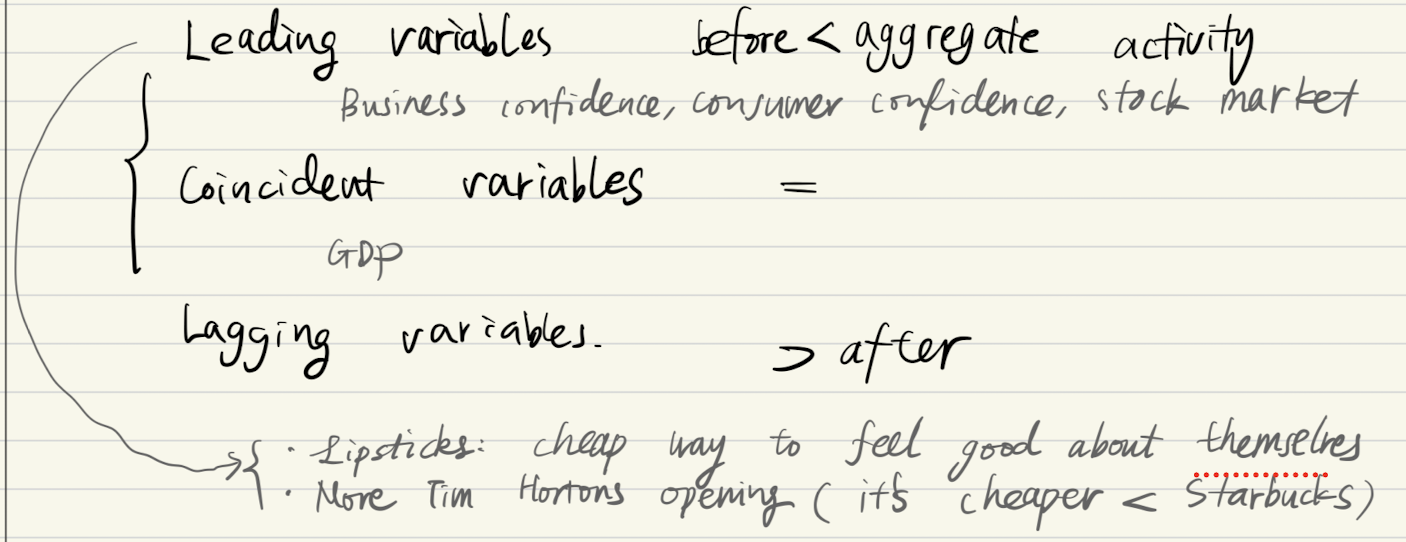 Leading variables before < aggregate activity
Business confidence, consumer confidence, stock market
Coincident variables =
GDP
Lagging variables. > after
· Lipsticks: cheap way to feel good about themselves
· More Tim Hortons opening (it's cheaper < Starbucks)